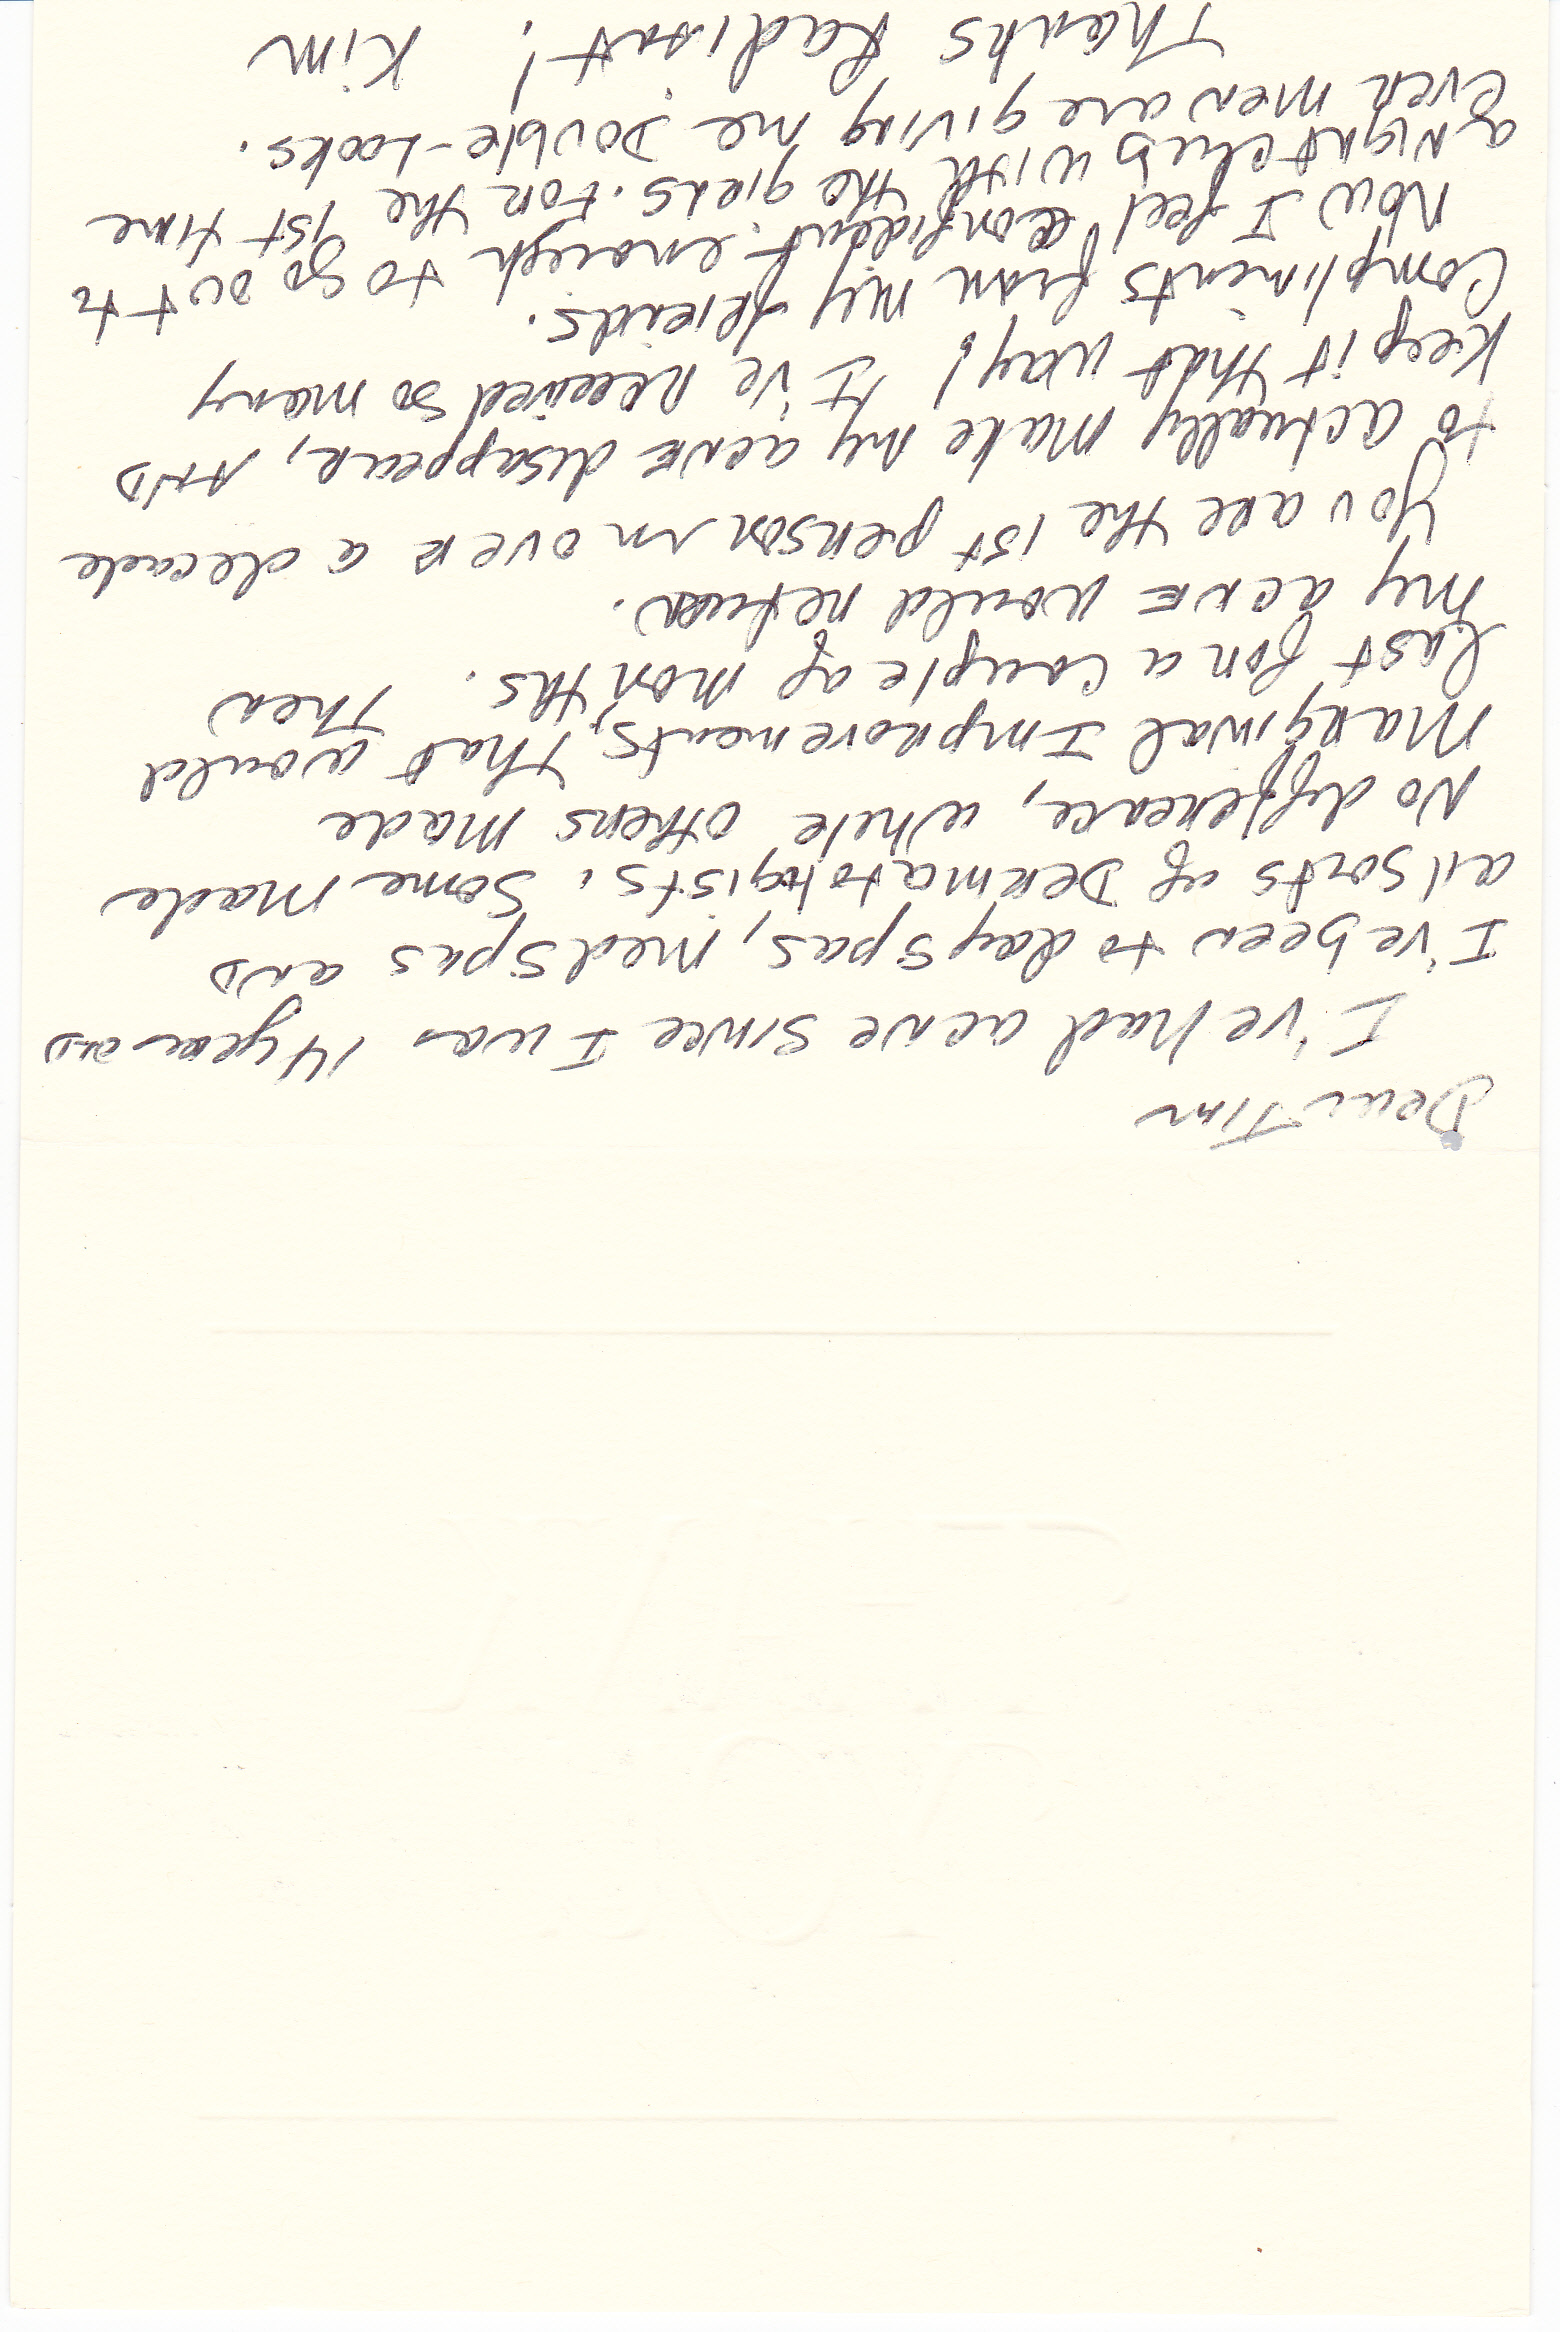 Dear Tim
I've had acne since I was 14 years old
I've been to day spas, medspas and
all sorts of Dermatologists. Some made
No difference, while others made
Marginal Improvements, that would
last for a couple of months. Then
my acne would return.
You are the 1st person in over a decade
to actually make my acne disappear, AND
keep it that way! I've received so many
compliments from my friends.
Now I feel confident enough to go out to
a Nightclub with the girls. For the 1st time
even men are giving me Double-Looks.
Thanks Radiant! Kim
THANK
YOU